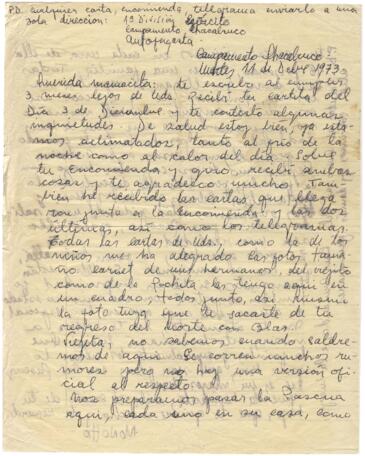 P.D. cualquier carta, encomienda, telegrama enviarlo a una
sola direccion: 1ª Division Ejército
Campamento Chacabuco
Antofagasta.
Campamento Chacabuco
Martes 11 de Dcbre 1973
Querida mamacita: te escribo al cumplir
meses lejos de Uds. Recibí tu cartita del
Día 3 de Diciembre y te contesto algunas
inquietudes. De salud estoy bien, ya esta-
mos aclimatados, tanto al frío de la
noche como al calor del día. Sobre
tu Encomienda y giro recibí ambas
cosas y te agradezco mucho. Tam
bien he recibido las cartas que llega
ron junto a la Encomienda y las dos
ultimas, así como los telegramas.
Todas las cartas de Uds., como la de los
niños me ha alegrado las fotos tama
ño carnet de mis hermanos, del viejito
como de la Pochita las tengo aquí en
un cuadro, todos junto, así mismo
la foto tuya que te sacaste de tu
regreso del Norte con Blas.
Viejita, no sabemos cuando saldre-
mos de aquí. Se corren muchos ru-
mores pero no hay una versión ofi-
cial al respecto.
Nos preparamos pasar la Pascua
aquí, cada uno en su casa, como